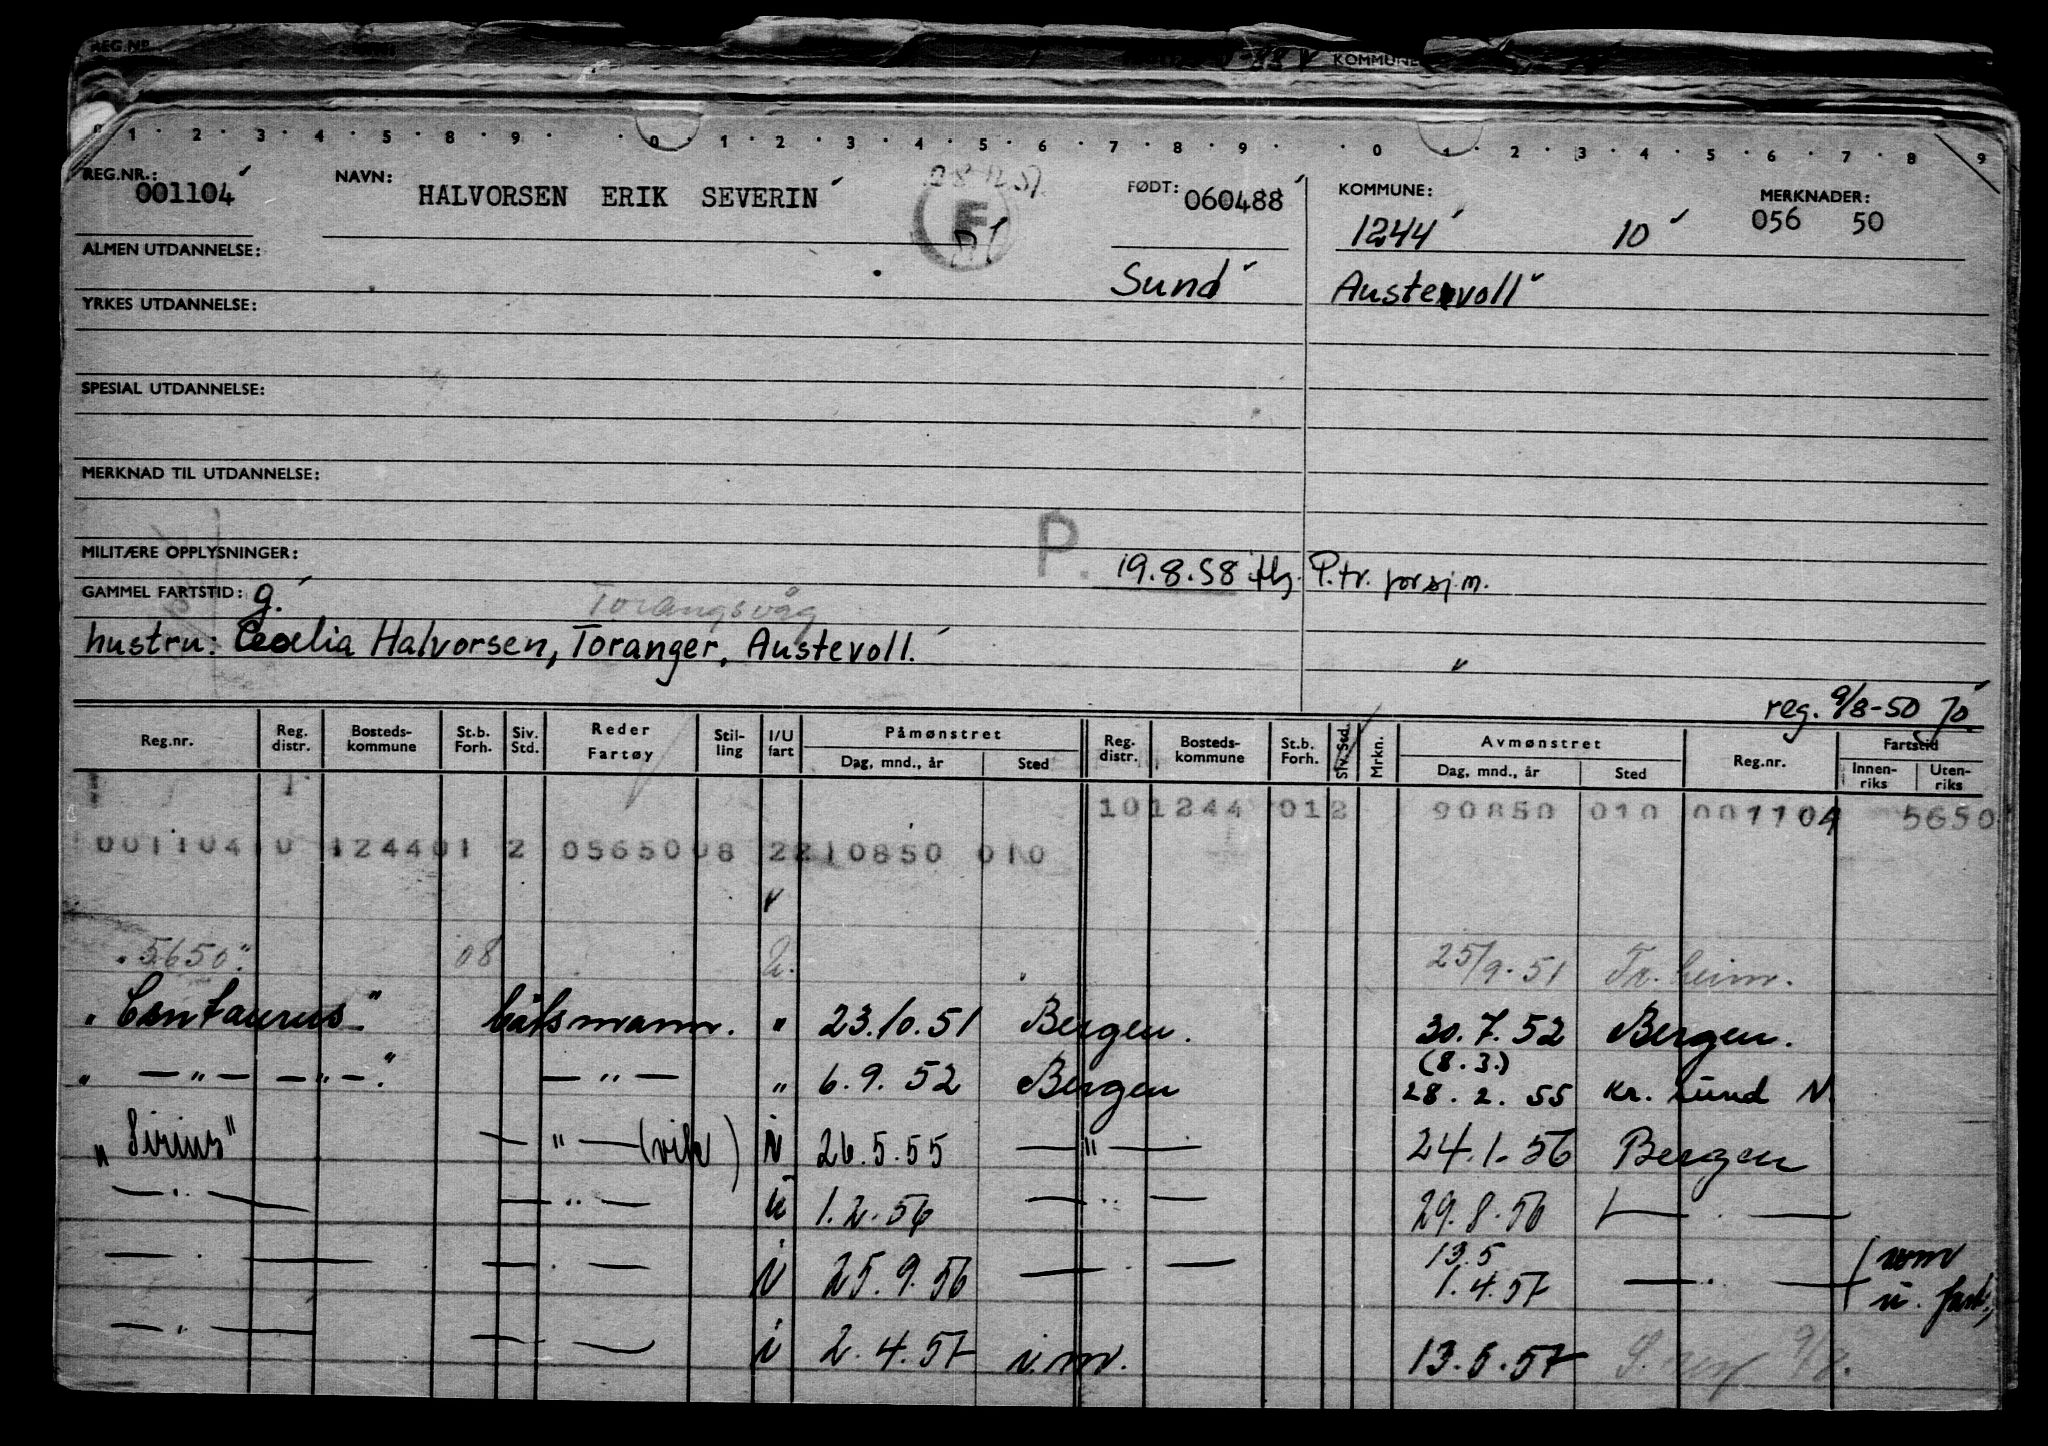 REG.NR. KOMMUNE
1 2 3 4 5 8 9 0 1 2 3 4 5 6 7 8 9 0 1 2 3 4 5 6 7 8 9
REG.NR.: 001104 NAVN: HALVORSEN ERIK SEVERIN FØDT: 060488 KOMMUNE: 1244 10 MERKNADER: 056 50
F
ALMEN UTDANNELSE:
Sund Austevoll
YRKES UTDANNELSE:
SPESIAL UTDANNELSE:
MERKNAD TIL UTDANNELSE:
P.
MILITÆRE OPPLYSNINGER:
19.8.58 P.tr. for sj.m.
GAMMEL FARTSTID: g.
Torangsvåg
hustru: Cecelia Halvorsen, Toranger, Austevoll.
reg. 9/8-50 Jo
Reg.nr. Reg. distr. Bosteds-kommune St.b. Forh. Siv. Std. Reder Fartøy Stil-ling I/U fart Påmønstret Dag, mnd., år Sted Reg. distr. Bosteds-kommune St.b. Forh. Siv. Std. Mrkn. Avmønstret Dag, mnd., år Sted Reg.nr. Fartstid Innen-riks Uten-riks
10 1244 01 2 90850 010 001104 5650
001104 0 1244 01 2 05650 08 2 210850 010
"5650" 08 U. 25/9-51 Tr.heim.
"Centaurus" båtsmann. " 23.10.51 Bergen. 30.7.52 Bergen.
(8.3.)
" — " — — " —." — " — " 6.9.52 Bergen 28.2.55 Kr.sund N.
"Sirius" — " — (vik) i 26.5.55 — " — 24.1.56 Bergen
— " — — " — u 1.2.56 — " — 29.8.56 — " —
13.5
— " — — " — i 25.9.56 — " — 1.4.57 — " — (som
u. fart)
— " — — " — i 2.4.57 13.5.57